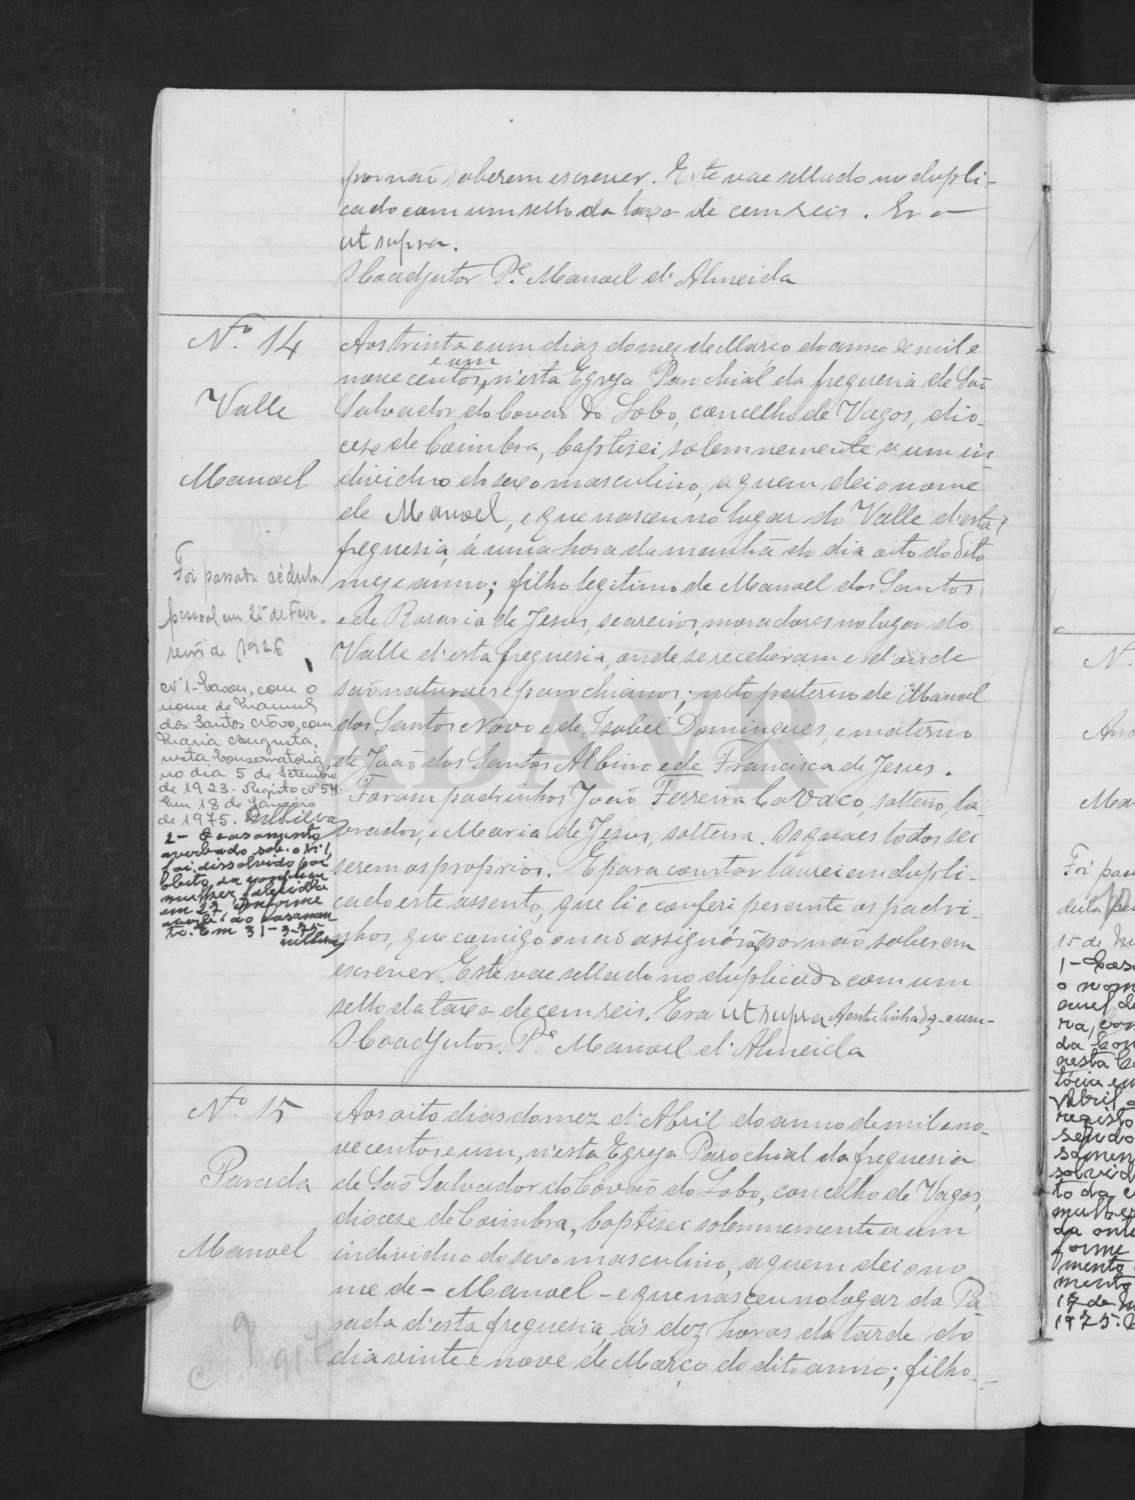 por não saberem escrever. Este vae sellado no dupli-
cado com um sello da taxa de cem reis. Era
ut supra.
O Coadjutor P.e Manoel d'Almeida
N.o 14
Valle
Manoel
Aos trinta e um dias do mez de Março do anno de mil e
e um
nove centos, n'esta Egreja Parochial da freguesia de São
Salvador do Covão do Lobo, concelho de Vagos, dio-
cese de Coimbra, baptisei solemnemente a um in-
dividuo do sexo masculino, a quem dei o nome
de Manoel, e que nasceu no lugar do Valle d'esta
freguesia, á uma hora da manhã do dia oito do dito
mez e anno; filho legitimo de Manoel dos Santos
e de Rosaria de Jesus, seareiros, moradores no lugar do
Valle d'esta freguesia, onde se receberam e d'onde
são naturaes e parochianos; neto paterno de Manoel
dos Santos Novo e de Isabel Domingues, e materno
de João dos Santos Albino e de Francisca de Jesus.
Foram padrinhos João Ferreira Cavaco, solteiro, la-
vrador, e Maria de Jesus, solteira. Os quaes todos sei
serem os proprios. E para constar lavrei em dupli-
cado este assento, que li e conferi perante os padri-
nhos, que comigo o não assignárão por não saberem
escrever. Este vae sellado no duplicado com um
sello da taxa de cem reis. Era ut supra. A entrelinha diz-e um-
O Coadjutor. P.e Manoel d'Almeida
Foi passada cédula
pessoal em 25 de Feve-
reiro de 1926
N.o 1-Casou, com o
nome de Manuel
dos Santos Novo, com
Maria Augusta,
nesta Conservatória,
no dia 5 de Setembro
de 1923. Registo n.o 54.
Em 18 de Janeiro
de 1975.
2- O casamento
averbado sob o n.o 1,
foi dissolvido por
óbito da
mulher, falecida
em 23
casamen
to. Em 31-3-75
N.o 15
Parada
Manoel
Aos oito dias do mez d'Abril do anno de mil e no-
ve centos e um, n'esta Egreja Parochial da freguesia
de São Salvador do Covão do Lobo, concelho de Vagos,
diocese de Coimbra, baptisei solemnemente a um
individuo do sexo masculino, a quem dei o no
me de - Manoel - e que nasceu no lugar da Pa-
rada d'esta freguesia, ás dez horas da tarde do
dia vinte e nove de Março do dito anno; filho
ADAVR
N.
Foi pas
15 de
1-Cas
o nom
ra, com
da Con
nesta C
Abril
registo
mulher
forme
17 de
1975.